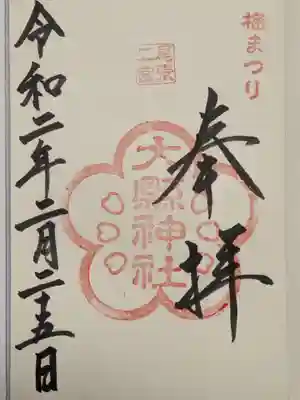 梅まつり
奉拝
尾張二宮
大縣神社
令和二年二月二十五日